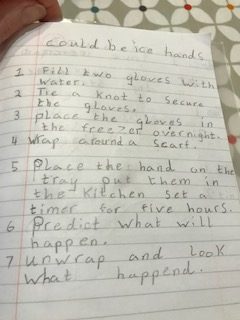 could be ice hands
1 Fill two gloves with
water.
2 Tie a knot to secure
the gloves.
3 place the gloves in
the freezer overnight.
4 wrap around a scarf.
5 Place the hand on the
tray put them in
the kitchen set a
timer for five hours.
6 Predict what will
happen.
7 unwrap and look
what happend.